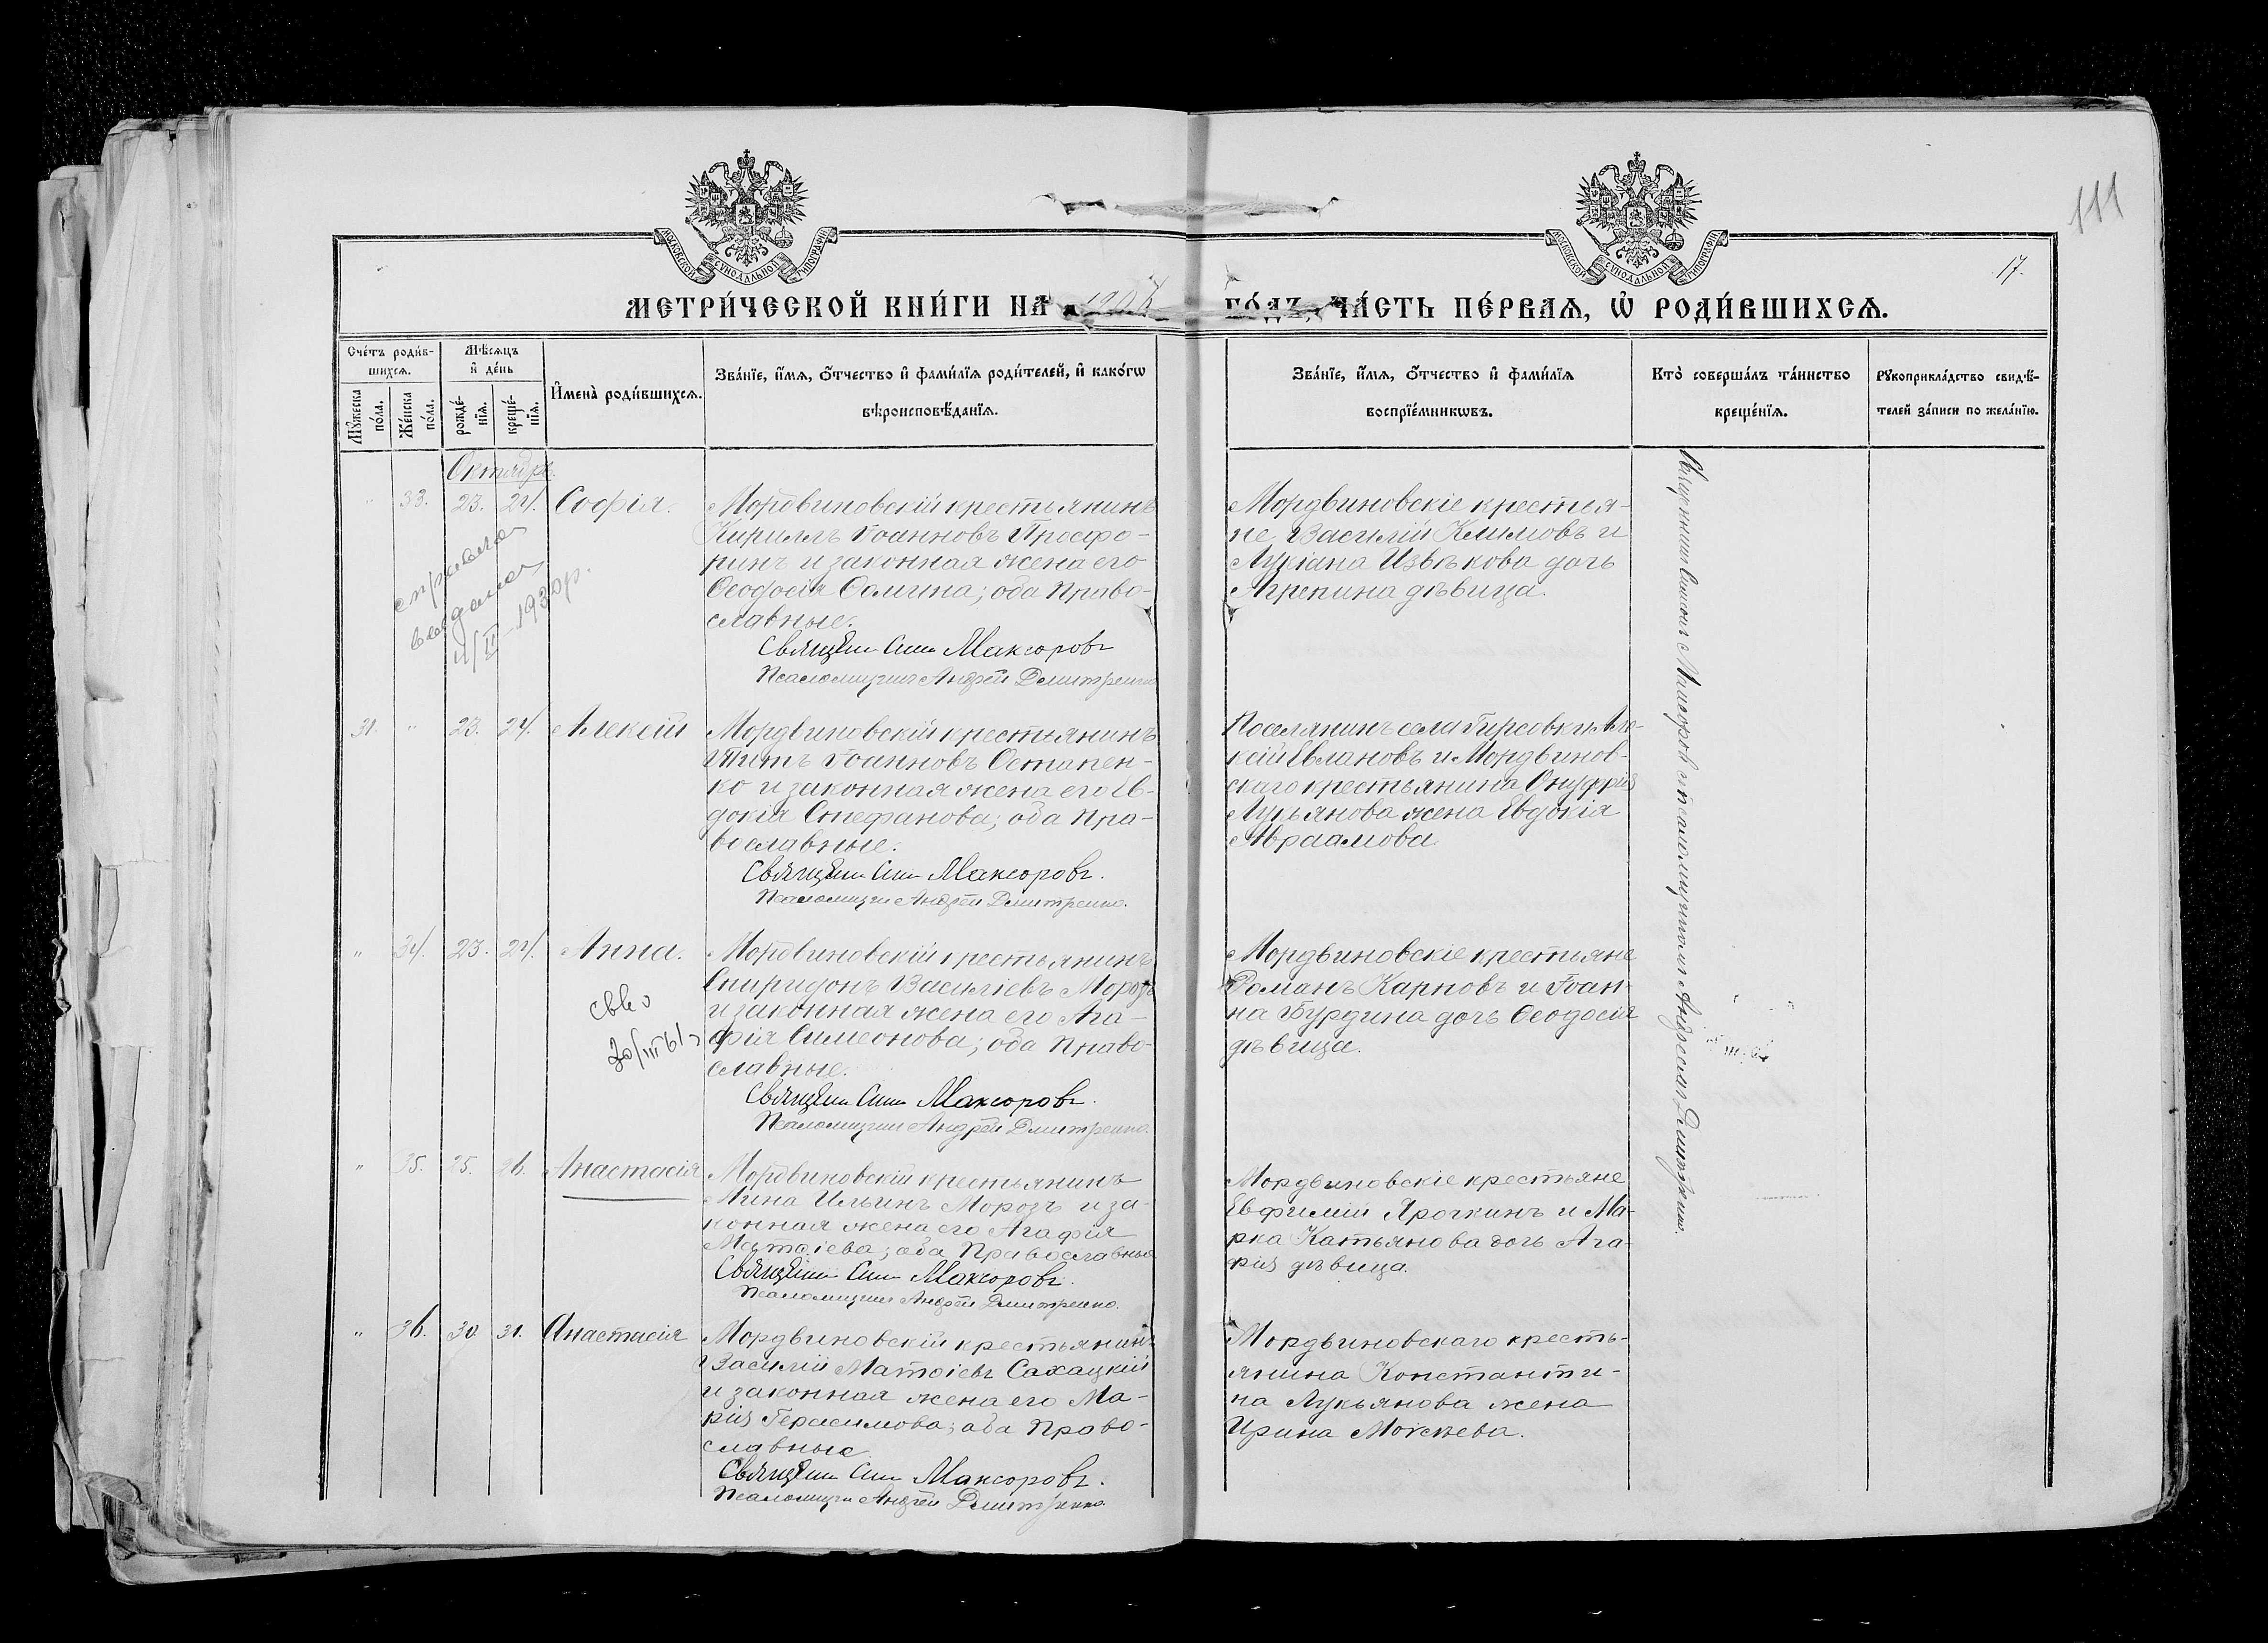 111
17.
МОСКОВСКОЙ СѴНОДАЛЬНОЙ ТИПОГРАФІИ
МОСКОВСКОЙ СѴНОДАЛЬНОЙ ТИПОГРАФІИ
МЕТРИ́ЧЕСКОЙ КНИ́ГИ НА ГО́ДЪ, ЧА́СТЬ ПЕ́РВАѦ, Ѡ҆ РОДИ́ВШИХСѦ.
Сче́тъ роди́в-
шихсѧ.
Мꙋ́жеска по́ла.
Же́нска по́ла.
Мѣ́сѧцъ и҆ де́нь
рожде́-нїѧ.
креще́-нїѧ.
И҆мена̀ роди́вшихсѧ.
Зва́нїе, и҆́мѧ, ѻ҆́тчество и҆ фами́лїѧ роди́телей, и҆ како́гѡ
вѣроисповѣ́данїѧ.
Зва́нїе, и҆́мѧ, ѻ҆́тчество и҆ фами́лїѧ
воспрїе́мникѡвъ.
Кто̀ соверша́лъ та́инство
креще́нїѧ.
Рꙋкоприкла́дство свидѣ́-
телей за́писи по жела́нїю.
Октябрь.
" 33. 23. 24. Софія.
Мордвиновскій крестьянинъ
Кириллъ Іоанновъ Просфо-
ринъ и законная жена его
Ѳеодосія Ѳомина; оба Право-
славные.
Священ. Сим. Максоровъ
Псаломщикъ Андрей Дмитренко
справка
выдана
1930 р.
Мордвиновскіе крестья-
не Василій Климовъ и
Лукіана Извѣкова дочь
Агрепина дѣвица.
31. " 23. 24. Алексій
Мордвиновскій крестьянинъ
Титъ Іоанновъ Остапен-
ко и законная жена его Ев-
докія Стефанова; оба Пра-
вославные.
Священ. Сим. Максоровъ.
Псаломщикъ Андрей Дмитренко.
Поселянинъ села Гирсовки Але-
ксій Евлановъ и Мордвинов-
скаго крестьянина Онуфрія
Лукьянова жена Евдокія
Авраамова.
" 34. 23. 24. Анна.
Мордвиновскій крестьянинъ
Спиридонъ Василіевъ Морозъ
и законная жена его Ага-
фія Симеонова; оба Право-
славные.
Священ. Сим. Максоровъ.
Псаломщикъ Андрей Дмитренко.
Мордвиновскіе крестьяне
Романъ Карповъ и Іоан-
на Бурдина дочь Ѳеодосія
дѣвица.
" 35. 25. 26. Анастасія
Мордвиновскій крестьянинъ
Мина Ильинъ Морозъ и за-
конная жена его Агафія
Матѳіева; оба Православные
Священ. Сим. Максоровъ.
Псаломщикъ Андрей Дмитренко.
Мордвиновскіе крестьяне
Евфимій Ярочкинъ и Ма-
рка Катьянова дочь Ага-
фія дѣвица.
" 36. 30. 31. Анастасія
Мордвиновскій крестьянинъ
Василій Матѳіевъ Сахацкій
и законная жена его Ма-
рія Герасимова; оба Право-
славные
Священ. Сим. Максоровъ.
Псаломщикъ Андрей Дмитренко.
Мордвиновскаго кресть-
янина Константи-
на Лукьянова жена
Ирина Моисеева.
Священникъ Симеонъ Максоровъ съ псаломщикомъ Андреемъ Дмитренко.